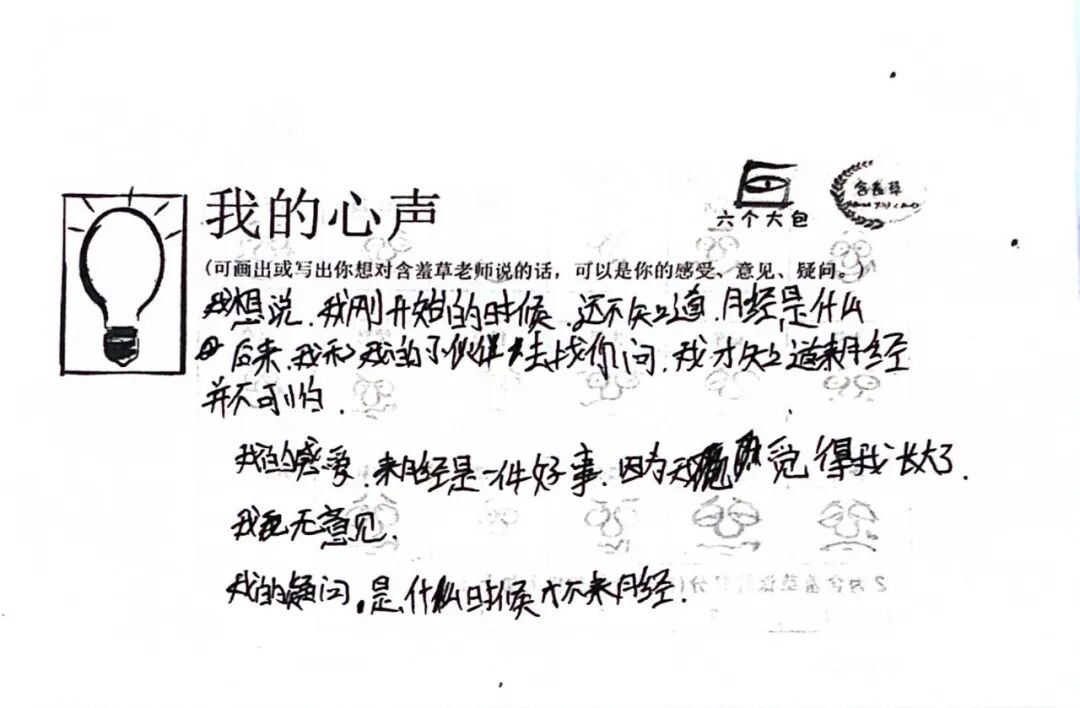 我的心声
六个大包
含羞草
HAN XIU CAO
(可画出或写出你想对含羞草老师说的话，可以是你的感受、意见、疑问。)
我想说.我刚开始的时候.还不知道.月经是什么
后来.我和我的小伙伴去找你问.我才知道来月经
并不可怕.
我的感受.来月经是一件好事.因为我觉得我长大了.
我无意见.
我的疑问.是什么时候才不来月经.